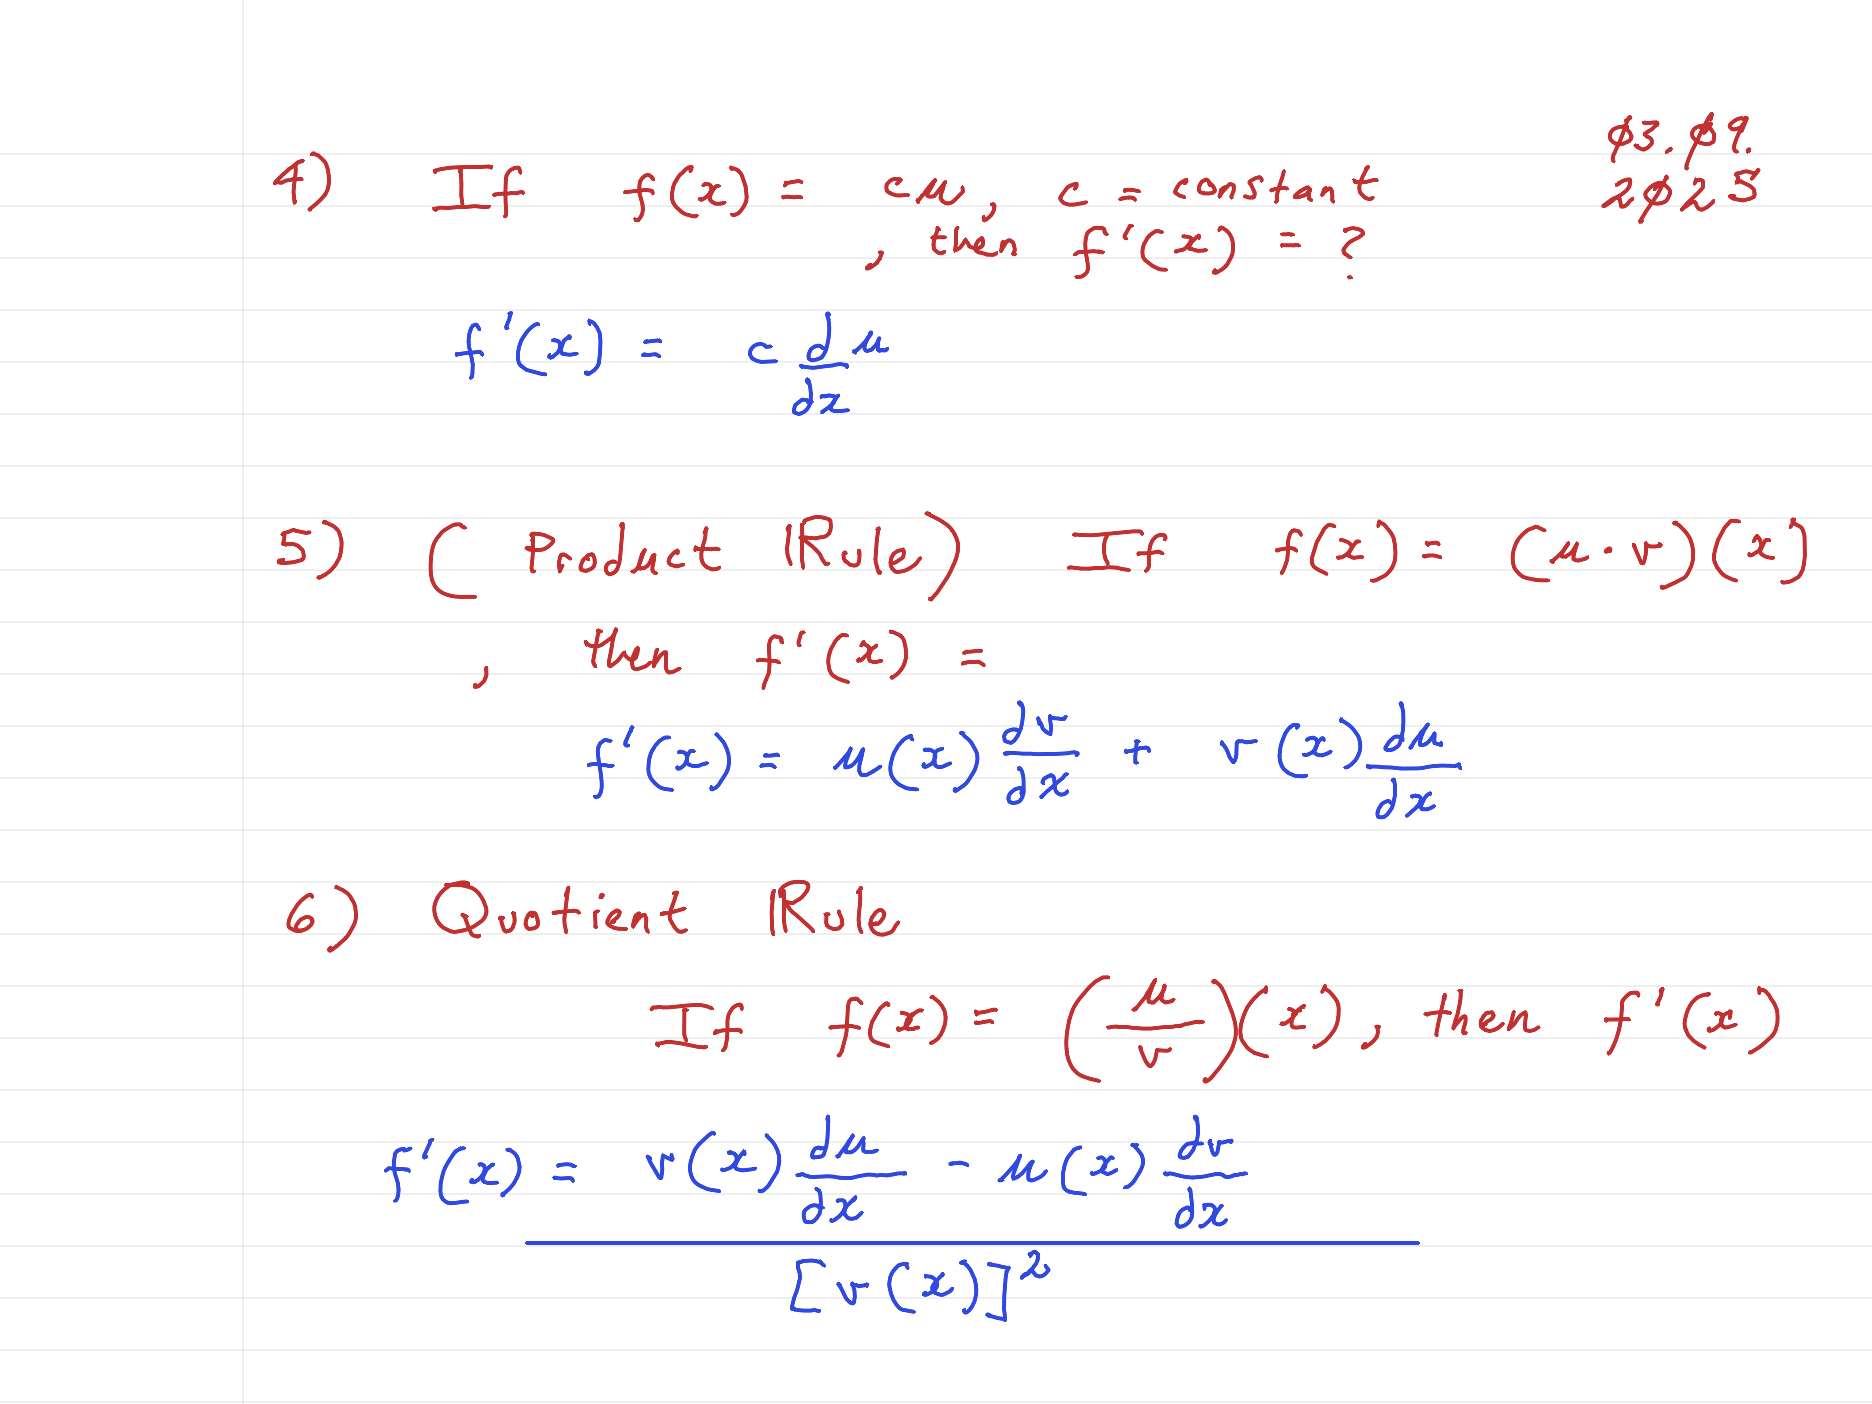 4) If f(x) = cu, c = constant
, then f'(x) = ?
ø3.ø9.
2ø25
f'(x) = c d/dx u
5) (Product Rule) If f(x) = (u·v)(x)
, then f'(x) =
f'(x) = u(x) dv/dx + v(x) du/dx
6) Quotient Rule
If f(x) = (u/v)(x), then f'(x)
f'(x) = v(x) du/dx - u(x) dv/dx
[v(x)]²